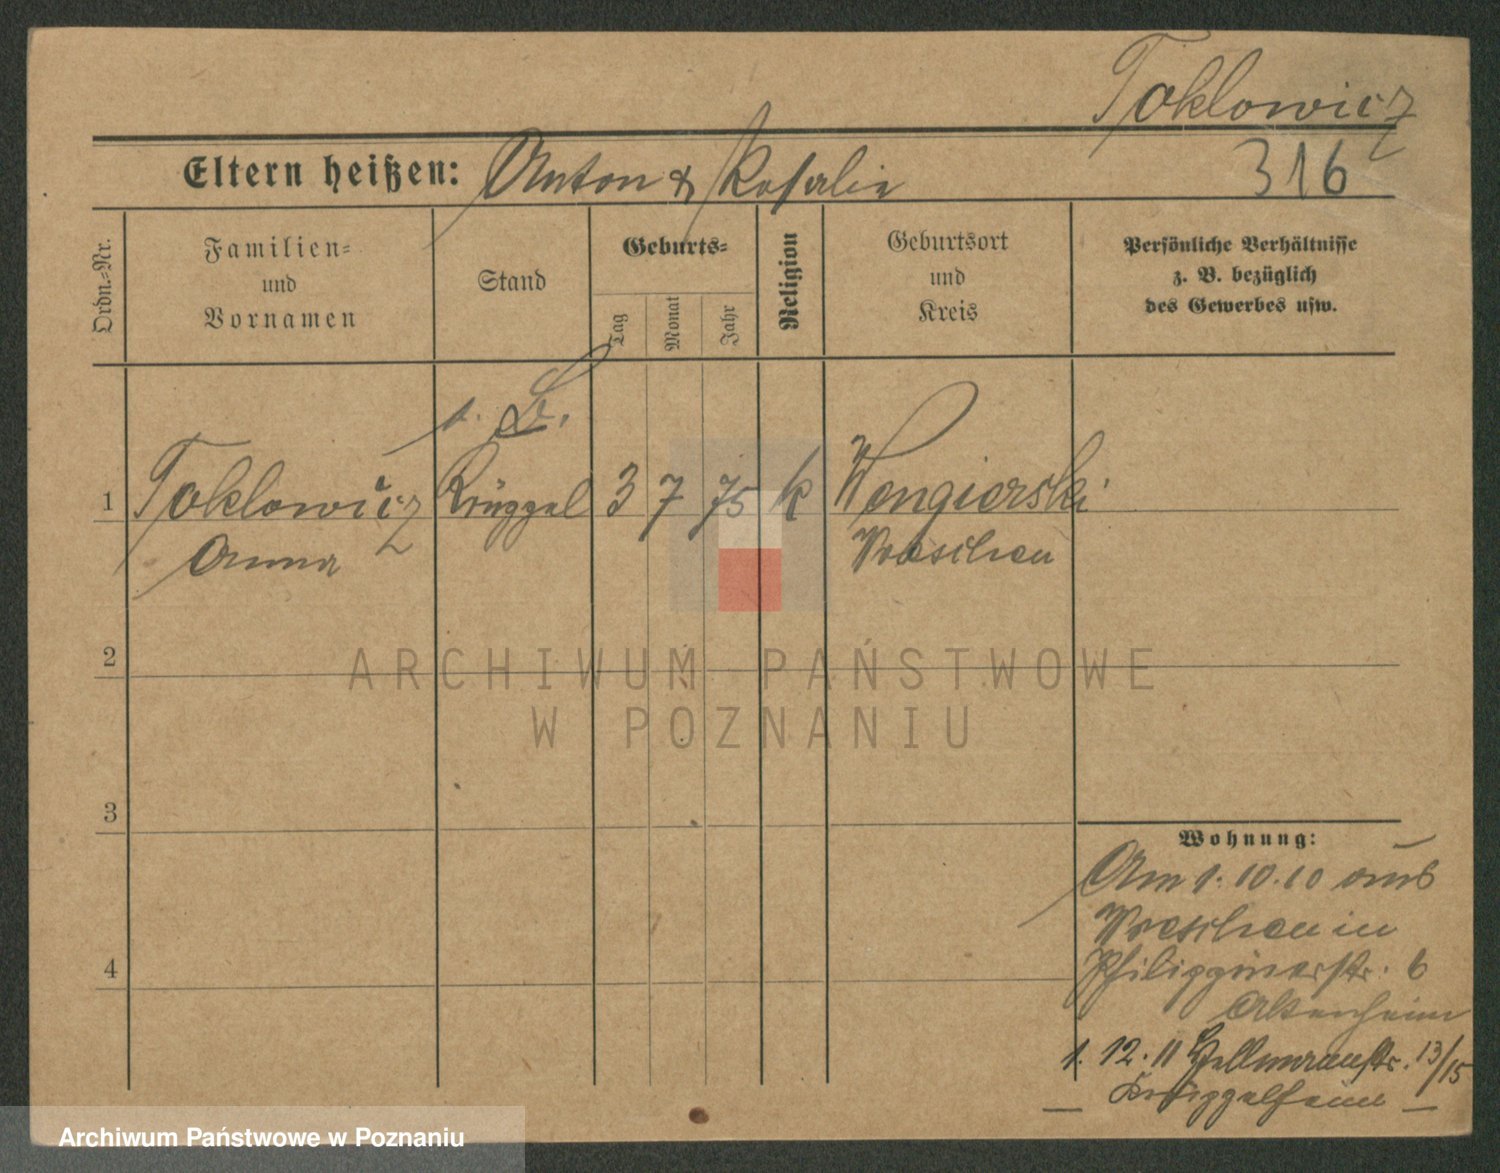 Toklowicz
Eltern heißen: Anton & Rosalie
316
Ordn.-Nr.
Familien-
und
Vornamen
Stand
Geburts-
Tag
Monat
Jahr
Religion
Geburtsort
und
Kreis
Persönliche Verhältnisse
z. B. bezüglich
des Gewerbes usw.
1
Toklowicz
Anna
Krüppel
3 7 75 k
Wengierski
Wreschen
2
3
4
Wohnung:
Am 1.10.10 aus
Wreschen in
Philippinerstr. 6
Altenheim
1. 12. 11 Hellmannstr. 13/15
Krüppelheim
ARCHIWUM PAŃSTWOWE
W POZNANIU
Archiwum Państwowe w Poznaniu